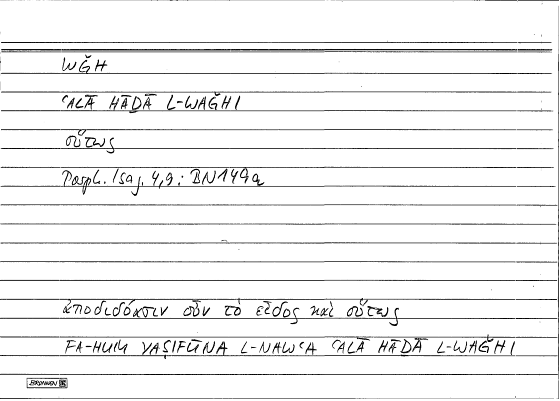 WǦH
ʿALĀ HĀḎĀ L-WAǦHI
οὕτως
Porph. Isag. 4,9; BN149a
ἀποδιδόασιν οὖν τὸ εἶδος καὶ οὕτως
FA-HUM YAṢIFŪNA L-NAWʿA ʿALĀ HĀḎĀ L-WAǦHI
BRUNNEN